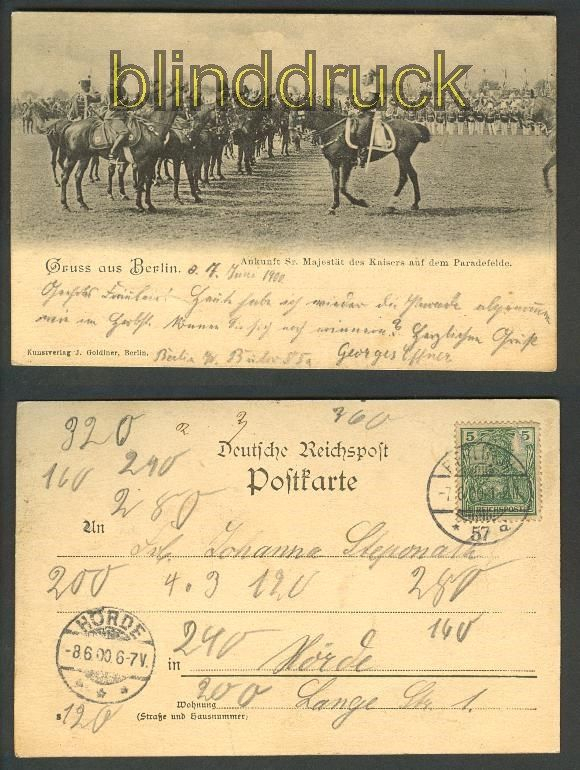 blinddruck
Gruss aus Berlin. d. 7. Juni 1900
Ankunft Sr. Majestät des Kaisers auf dem Paradefelde.
Geehrtes Fräulein! Heute habe ich wieder die Parade abgenommen
wie im Herbst. Können Sie sich noch erinnern? Herzlichen Gruß
Kunstverlag J. Goldiner, Berlin. Berlin W. Bülow 85a Georges
320 2 3 360
Deutsche Reichspost
160 240
Postkarte
5
REICHSPOST
BERLIN
57 a
280
An
Frl. Johanna
200 4.3 120 280
HÖRDE
-8.6.00.6-7V.
240 160
in Hörde
200
Wohnung Lange Str. 1.
(Straße und Hausnummer)
s 120